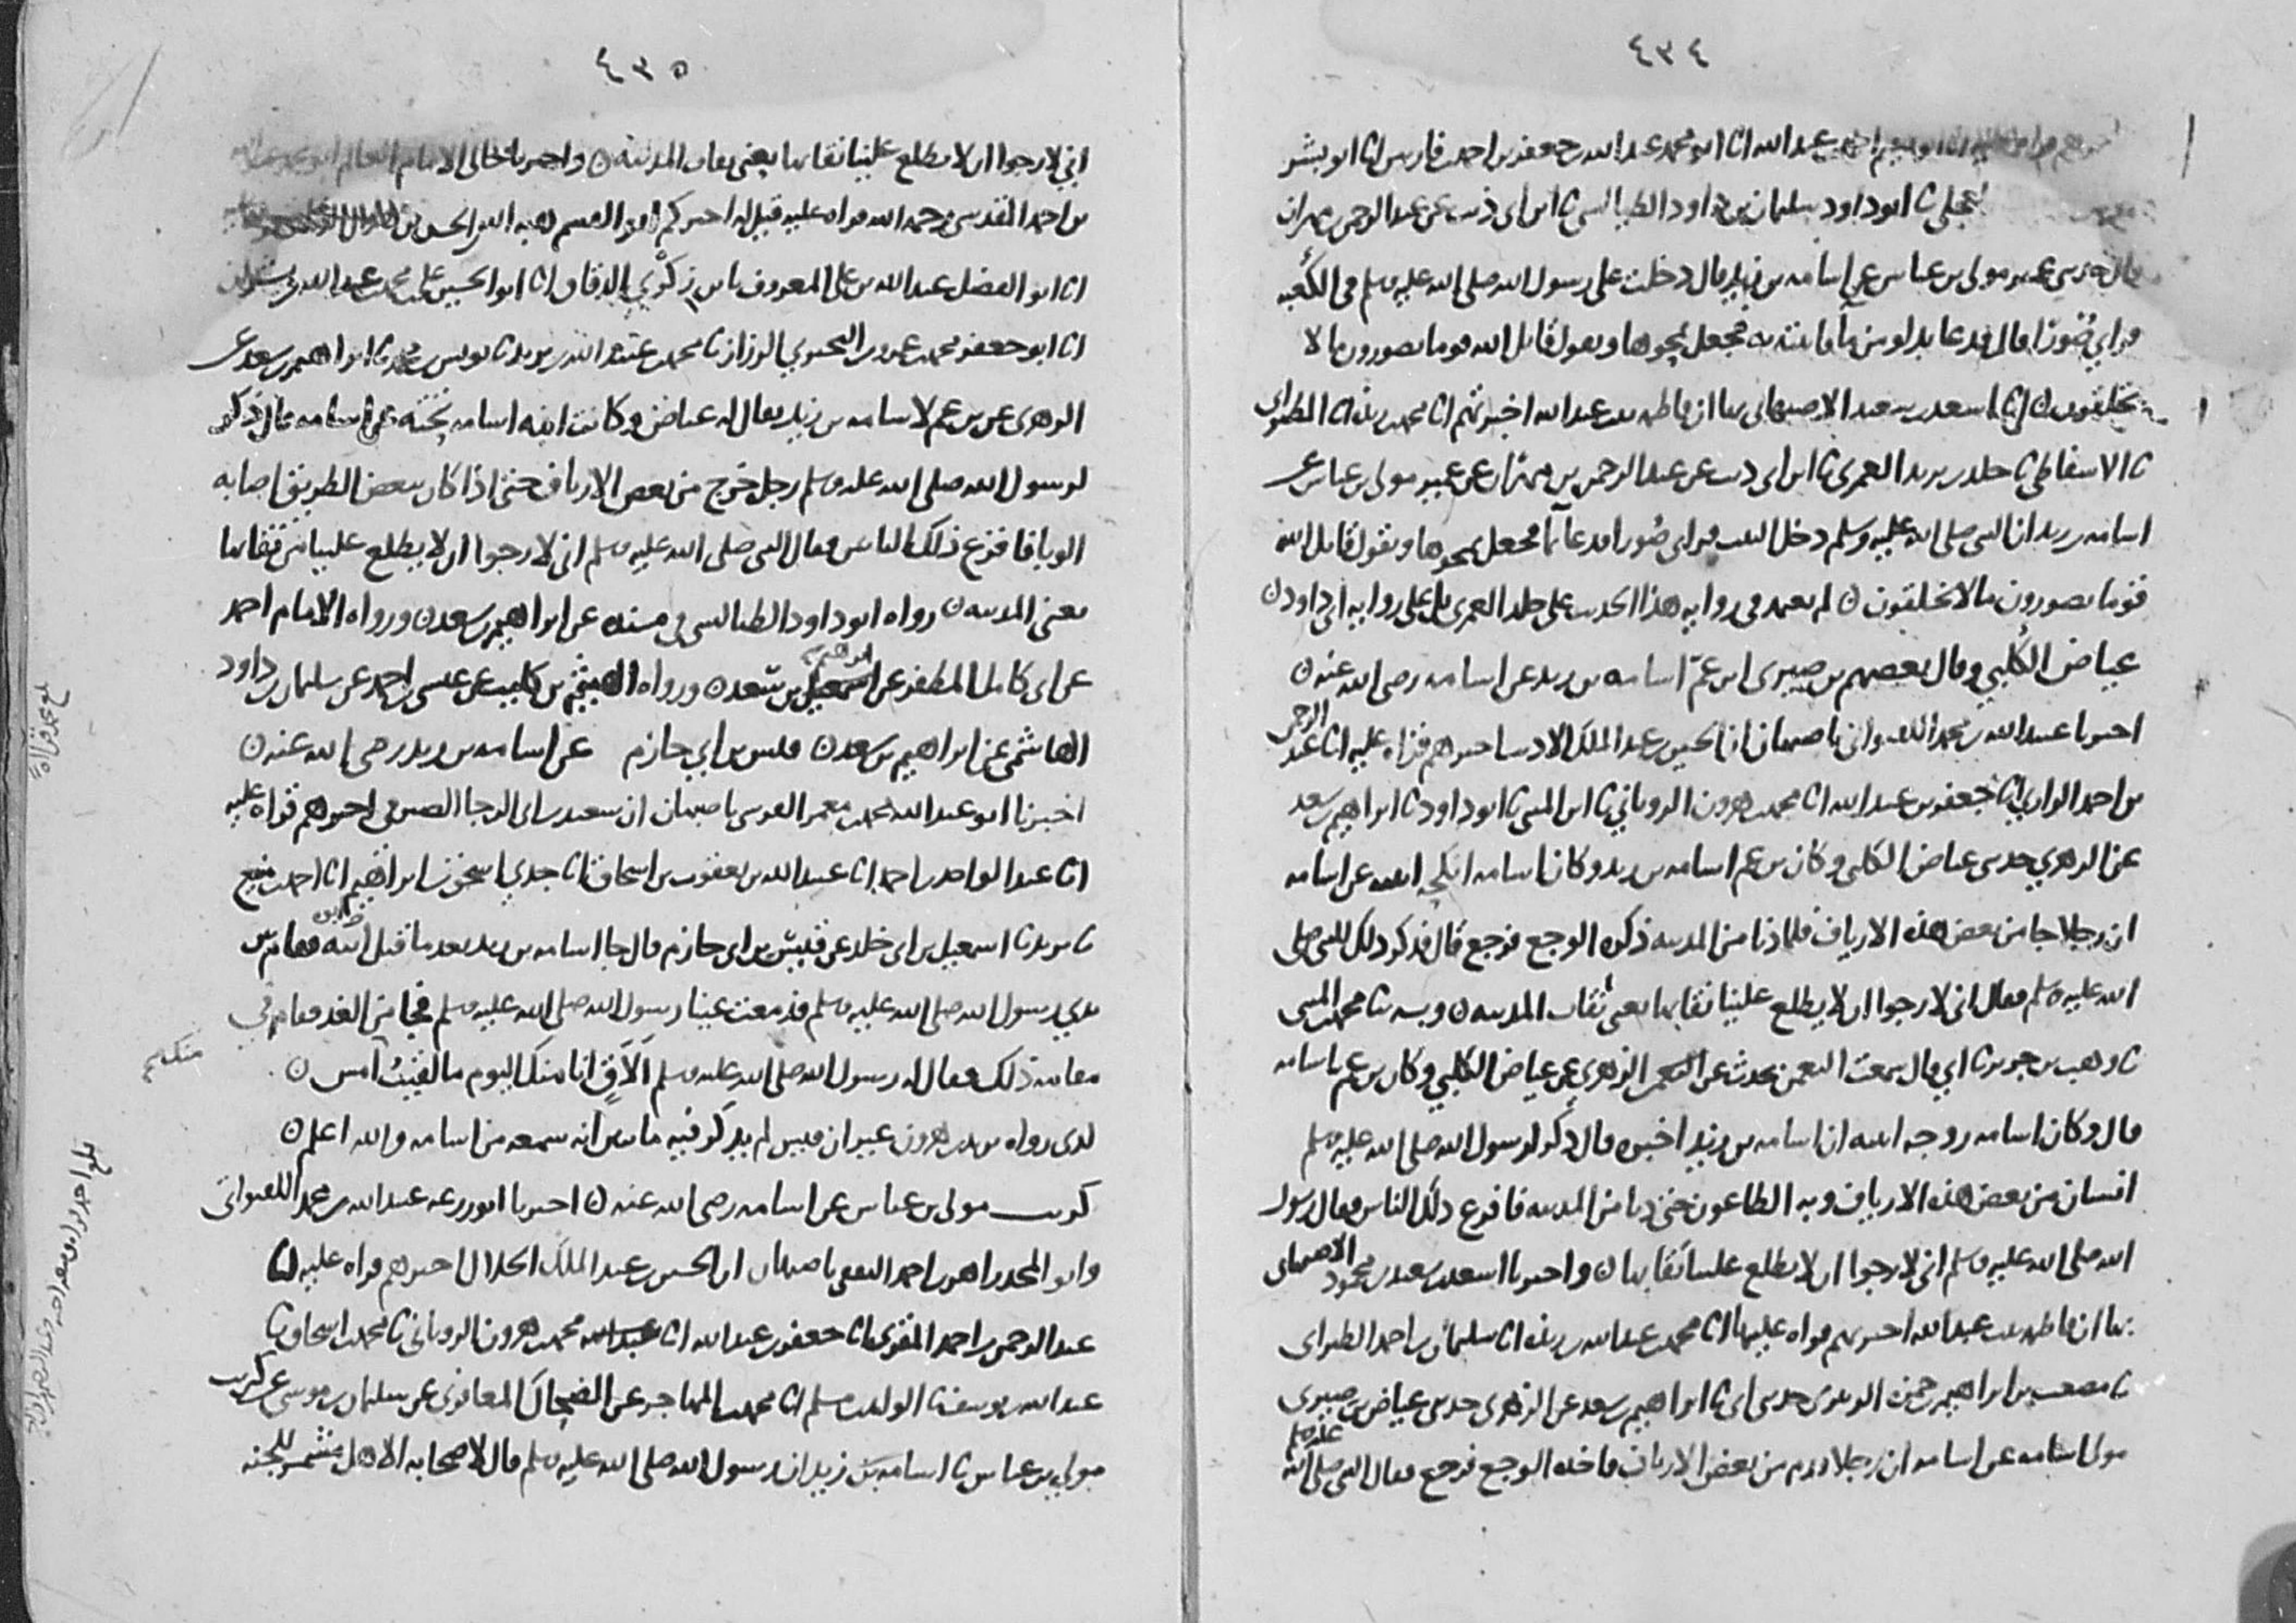 ٤٣٤
عبد الله انا ابو محمد عبد الله بن جعفر بن احمد بن فارس انا ابو بشر
نا ابو داود سليمان بن داود الطيالسي نا ابن ابي ذئب عن عبد الرحمن بن مهران
عمير مولى بن عباس عن اسامه بن زيد قال دخلت على رسول الله صلى الله عليه وسلم في الكعبه
وراى صُورًا قال فدعا بدلو من ماء فاتيته به فجعل يمحوها ويقول قاتل الله قوما يصورون ما لا
يخلقون ٥ انا اسعد بن سعيد الاصبهاني بها ان فاطمه بنت عبد الله اخبرتهم انا محمد بن ريذه انا الطبراني
نا الاسفاطي نا خلد بن يزيد العمري نا ابن ابي ذئب عن عبد الرحمن بن مهران عن عمير مولى بن عباس عن
اسامه بن زيد ان النبي صلى الله عليه وسلم دخل البيت فراى صُورا فدعا بما فجعل يمحوها ويقول قاتل الله
قوما يصورون ما لا يخلقون ٥ لم نعتمد في روايه هذا الحديث على خلد العمري بل على روايه ابي داود ٥
عياض الكلبي وقال بعضهم بن صيبري ابن عمّ اسامه بن زيد عن اسامه رضي الله عنه ٥
اخبرنا عبد الله بن محمد اللفتواني باصبهان ان الحسين بن عبد الملك الاديب اخبرهم قراه عليه انا عبد الرحمن
بن احمد الرازي انا جعفر بن عبد الله انا محمد بن هرون الروياني نا ابن المثنى نا ابو داود نا ابراهيم بن سعد
عن الزهري حدثني عياض الكلبي وكان بن عم اسامه بن زيد وكان اسامه انكحه ابنته عن اسامه
ان رجلا جا من بعض هذه الارياف فلما دنا من المدينه ذكره الوجع فرجع قال فذكر ذلك للنبي صلى
الله عليه وسلم فقال اني لارجوا ان لا يطلع علينا نقابها يعني نقاب المدينه ٥ وبه نا محمد بن المثنى
نا وهب بن جرير نا ابي قال سمعت النعمن يحدث عن الزهري عن عياض الكلبي وكان بن عم اسامه
قال وكان اسامه زوجه ابنته ان اسامه بن زيد اخبره قال ذُكر لرسول الله صلى الله عليه وسلم
انسان من بعض هذه الارياف وبه الطاعون حتى دنا من المدينه فافزع ذلك الناس فقال رسول
الله صلى الله عليه وسلم اني لارجوا ان لا يطلع علينا نقابها ٥ واخبرنا اسعد بن سعيد بن محمود الاصبهاني
بها ان فاطمه بنت عبد الله اخبرتهم قراه عليها انا محمد بن عبد الله بن ريذه انا سليمان بن احمد الطبراني
نا مصعب بن ابراهيم بن حمزه الزبيري حدثني ابي نا ابراهيم بن سعد عن الزهري حدثني عياض بن صيبري
مولى اسامه عن اسامه ان رجلا قدم من بعض الارياف فاخذه الوجع فرجع فقال النبي صلى الله عليه وسلم
٤٣٥
اني لارجوا ان لا يطلع علينا نقابها يعني نقاب المدينه ٥ واخبرنا خالي الامام العالم ابو محمد عبد الله
بن احمد المقدسي رحمه الله قراه عليه قيل له اخبركم ابو القسم هبه الله بن الحسن بن هلال
انا ابو الفضل عبد الله بن علي المعروف بابن زكري الدقاق انا ابو الحسين علي بن محمد بن عبد الله بن بشران
انا ابو جعفر محمد بن عمرو بن البختري الرزاز نا محمد بن عبيد الله بن يزيد نا يونس بن محمد نا ابراهيم بن سعد عن
الزهري عن بن عم لاسامه بن زيد يقال له عياض وكانت ابنه اسامه تحته عن اسامه قال ذكر
لرسول الله صلى الله عليه وسلم رجل خرج من بعض الارياف حتى اذا كان ببعض الطريق اصابه
الوبا فافزع ذلك الناس فقال النبي صلى الله عليه وسلم اني لارجوا ان لا يطلع علينا من نقابها
يعني المدينه ٥ رواه ابو داود الطيالسي في مسنده عن ابراهيم بن سعد ٥ ورواه الامام احمد
عن ابي كامل المظفر عن ابراهيم بن سعد ٥ ورواه الهيثم بن كليب عن عيسى بن احمد عن سليمان بن داود
الهاشمي عن ابراهيم بن سعد ٥ قيس بن ابي حازم عن اسامه بن زيد رضي الله عنه ٥
اخبرنا ابو عبد الله محمد بن معمر القرشي باصبهان ان سعيد بن ابي الرجا الصيرفي اخبرهم قراه عليه
انا عبد الواحد بن احمد انا عبيد الله بن يعقوب بن اسحاق انا جدي اسحق بن ابراهيم انا احمد بن منيع
نا يزيد نا اسمعيل بن ابي خلد عن قيس بن ابي حازم قال جا اسامه بن زيد بعد ما قتل ابوه فقام بين
يدي رسول الله صلى الله عليه وسلم فدمعت عينا رسول الله صلى الله عليه وسلم فجا من الغد فقام في
مقامه ذلك فقال له رسول الله صلى الله عليه وسلم الاقي انا منك اليوم ما لقيت امس ٥
كذى رواه يزيد بن هرون غير ان قيس لم يذكر فيه ما يبين انه سمعه من اسامه والله اعلم ٥
كريب مولى بن عباس عن اسامه رضي الله عنه ٥ اخبرنا ابو زرعه عبيد الله بن محمد اللفتواني
وابو المجد زاهر بن احمد الثقفي باصبهان ان الحسين بن عبد الملك الخلال اخبرهم قراه عليه انا
عبد الرحمن بن احمد المقري انا جعفر بن عبد الله انا محمد بن هرون الروياني نا محمد بن اسحاق نا
عبد الله بن يوسف نا الوليد بن مسلم انا محمد بن المهاجر عن الضحاك المعافري عن سليمان بن موسى عن كريب
مولى بن عباس نا اسامه بن زيد ان رسول الله صلى الله عليه وسلم قال لاصحابه الا هل مشمر للجنه